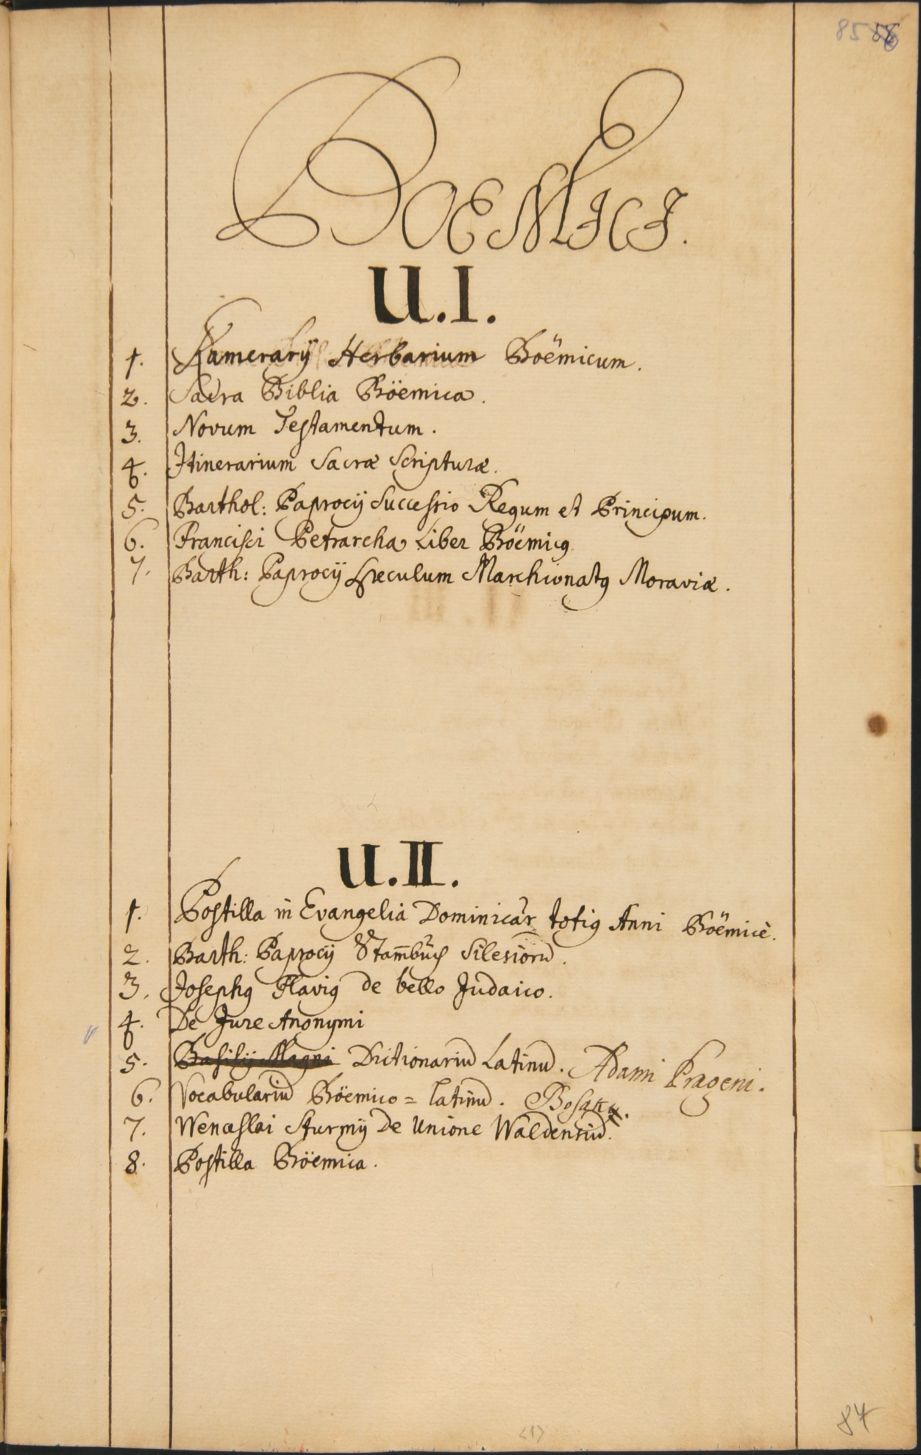 BOEMICI.
U.I.
1. Kamerarÿ Herbarium Boëmicum.
2. Sacra Biblia Böemica.
3. Novum Testamentum.
4. Itinerarium Sacræ Scripturæ.
5. Barthol: Paprocÿ Successio Regum et Principum.
6. Francisci Petrarcha Liber Böemicꝰ
7. Barth: Paprocÿ Speculum Marchionatꝰ Moraviæ.
U.II.
1. Postilla in Evangelia Dominicar totiꝰ Anni Böemicè.
2. Barth: Paprocÿ Stam̄bůch Silesiorū.
3. Josephꝰ Flaviꝰ de bello Judaico.
4. De Jure Anonymi
5. Basilÿ Magni Dictionariū Latinū. Adami Prageni.
6. Vocabulariū Böemico = Latinū.
7. Wenceslai Sturmÿ De Unione Waldensiū.
8. Postilla Böemica.
84